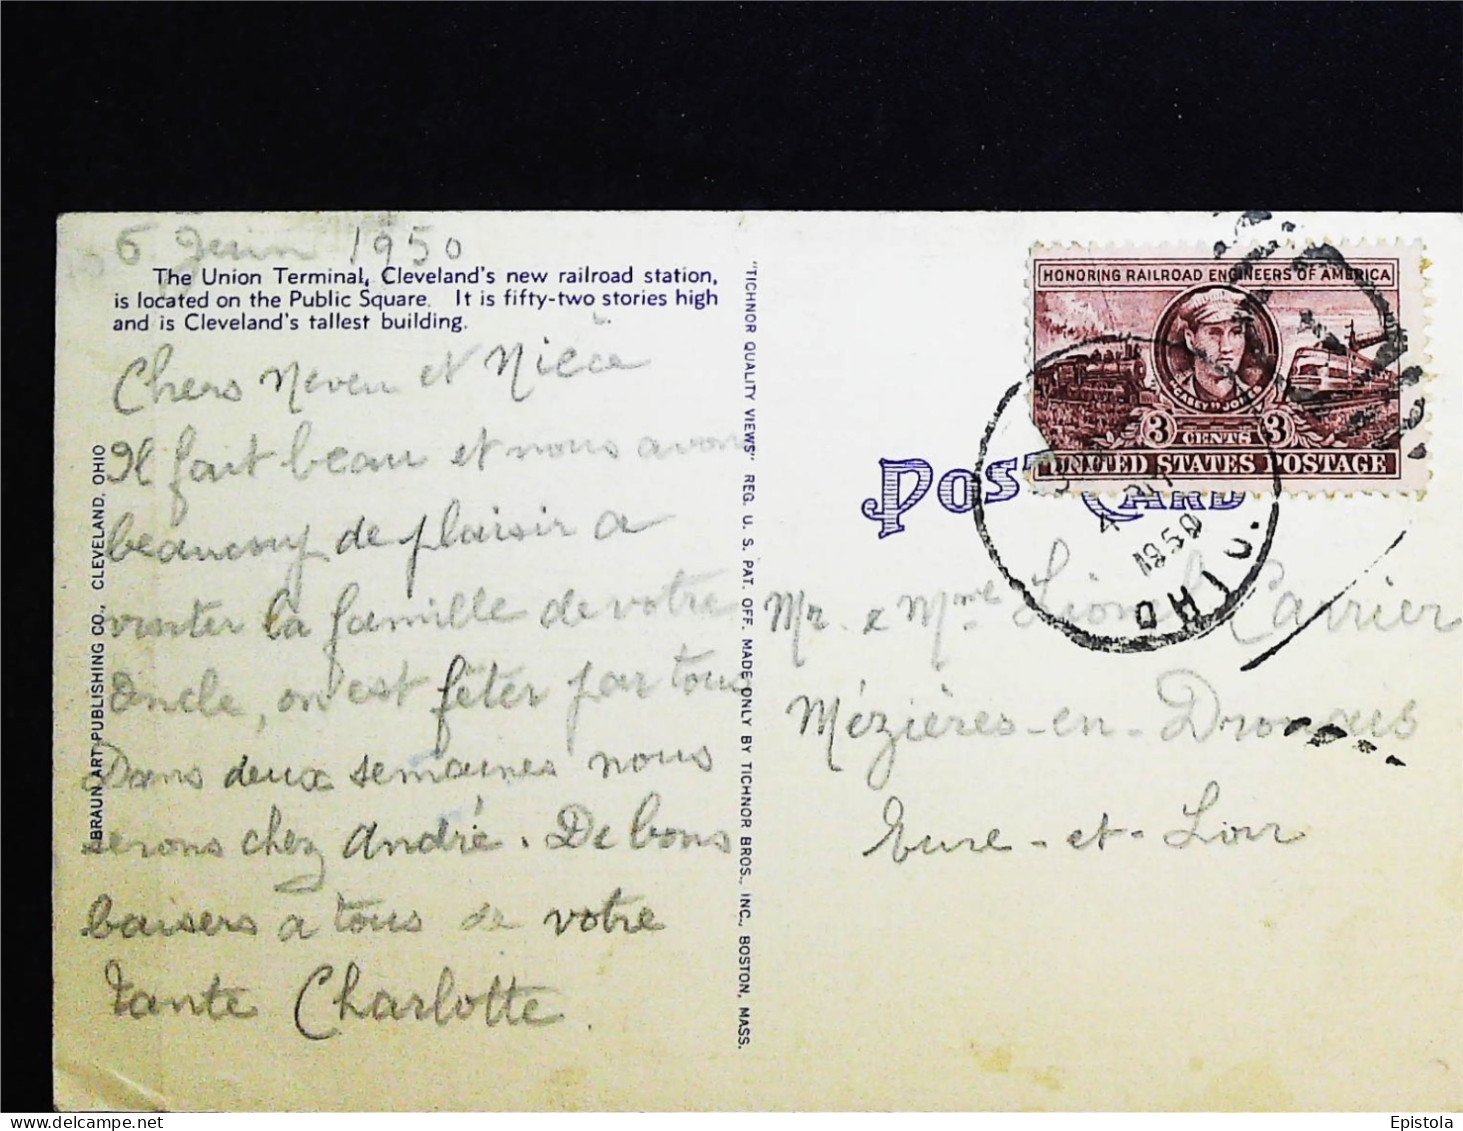 6 Juin 1950
The Union Terminal, Cleveland's new railroad station,
is located on the Public Square. It is fifty-two stories high
and is Cleveland's tallest building.
Chers Neveu et Nièce
Il fait beau et nous avons
beaucoup de plaisir a
visiter la famille de votre
Oncle, on est fêter par tous
Dans deux semaines nous
serons chez André. De bons
baisers a tous de votre
Tante Charlotte.
BRAUN ART PUBLISHING CO., CLEVELAND, OHIO
"TICHNOR QUALITY VIEWS" REG. U. S. PAT. OFF. MADE ONLY BY TICHNOR BROS., INC., BOSTON, MASS.
POST CARD
HONORING RAILROAD ENGINEERS OF AMERICA
"CASEY" JONES
3 CENTS 3
UNITED STATES POSTAGE
1950
OHIO.
Mr. & Mme Lionel Carrier
Mézières-en-Drouais
Eure-et-Loir
Epistola